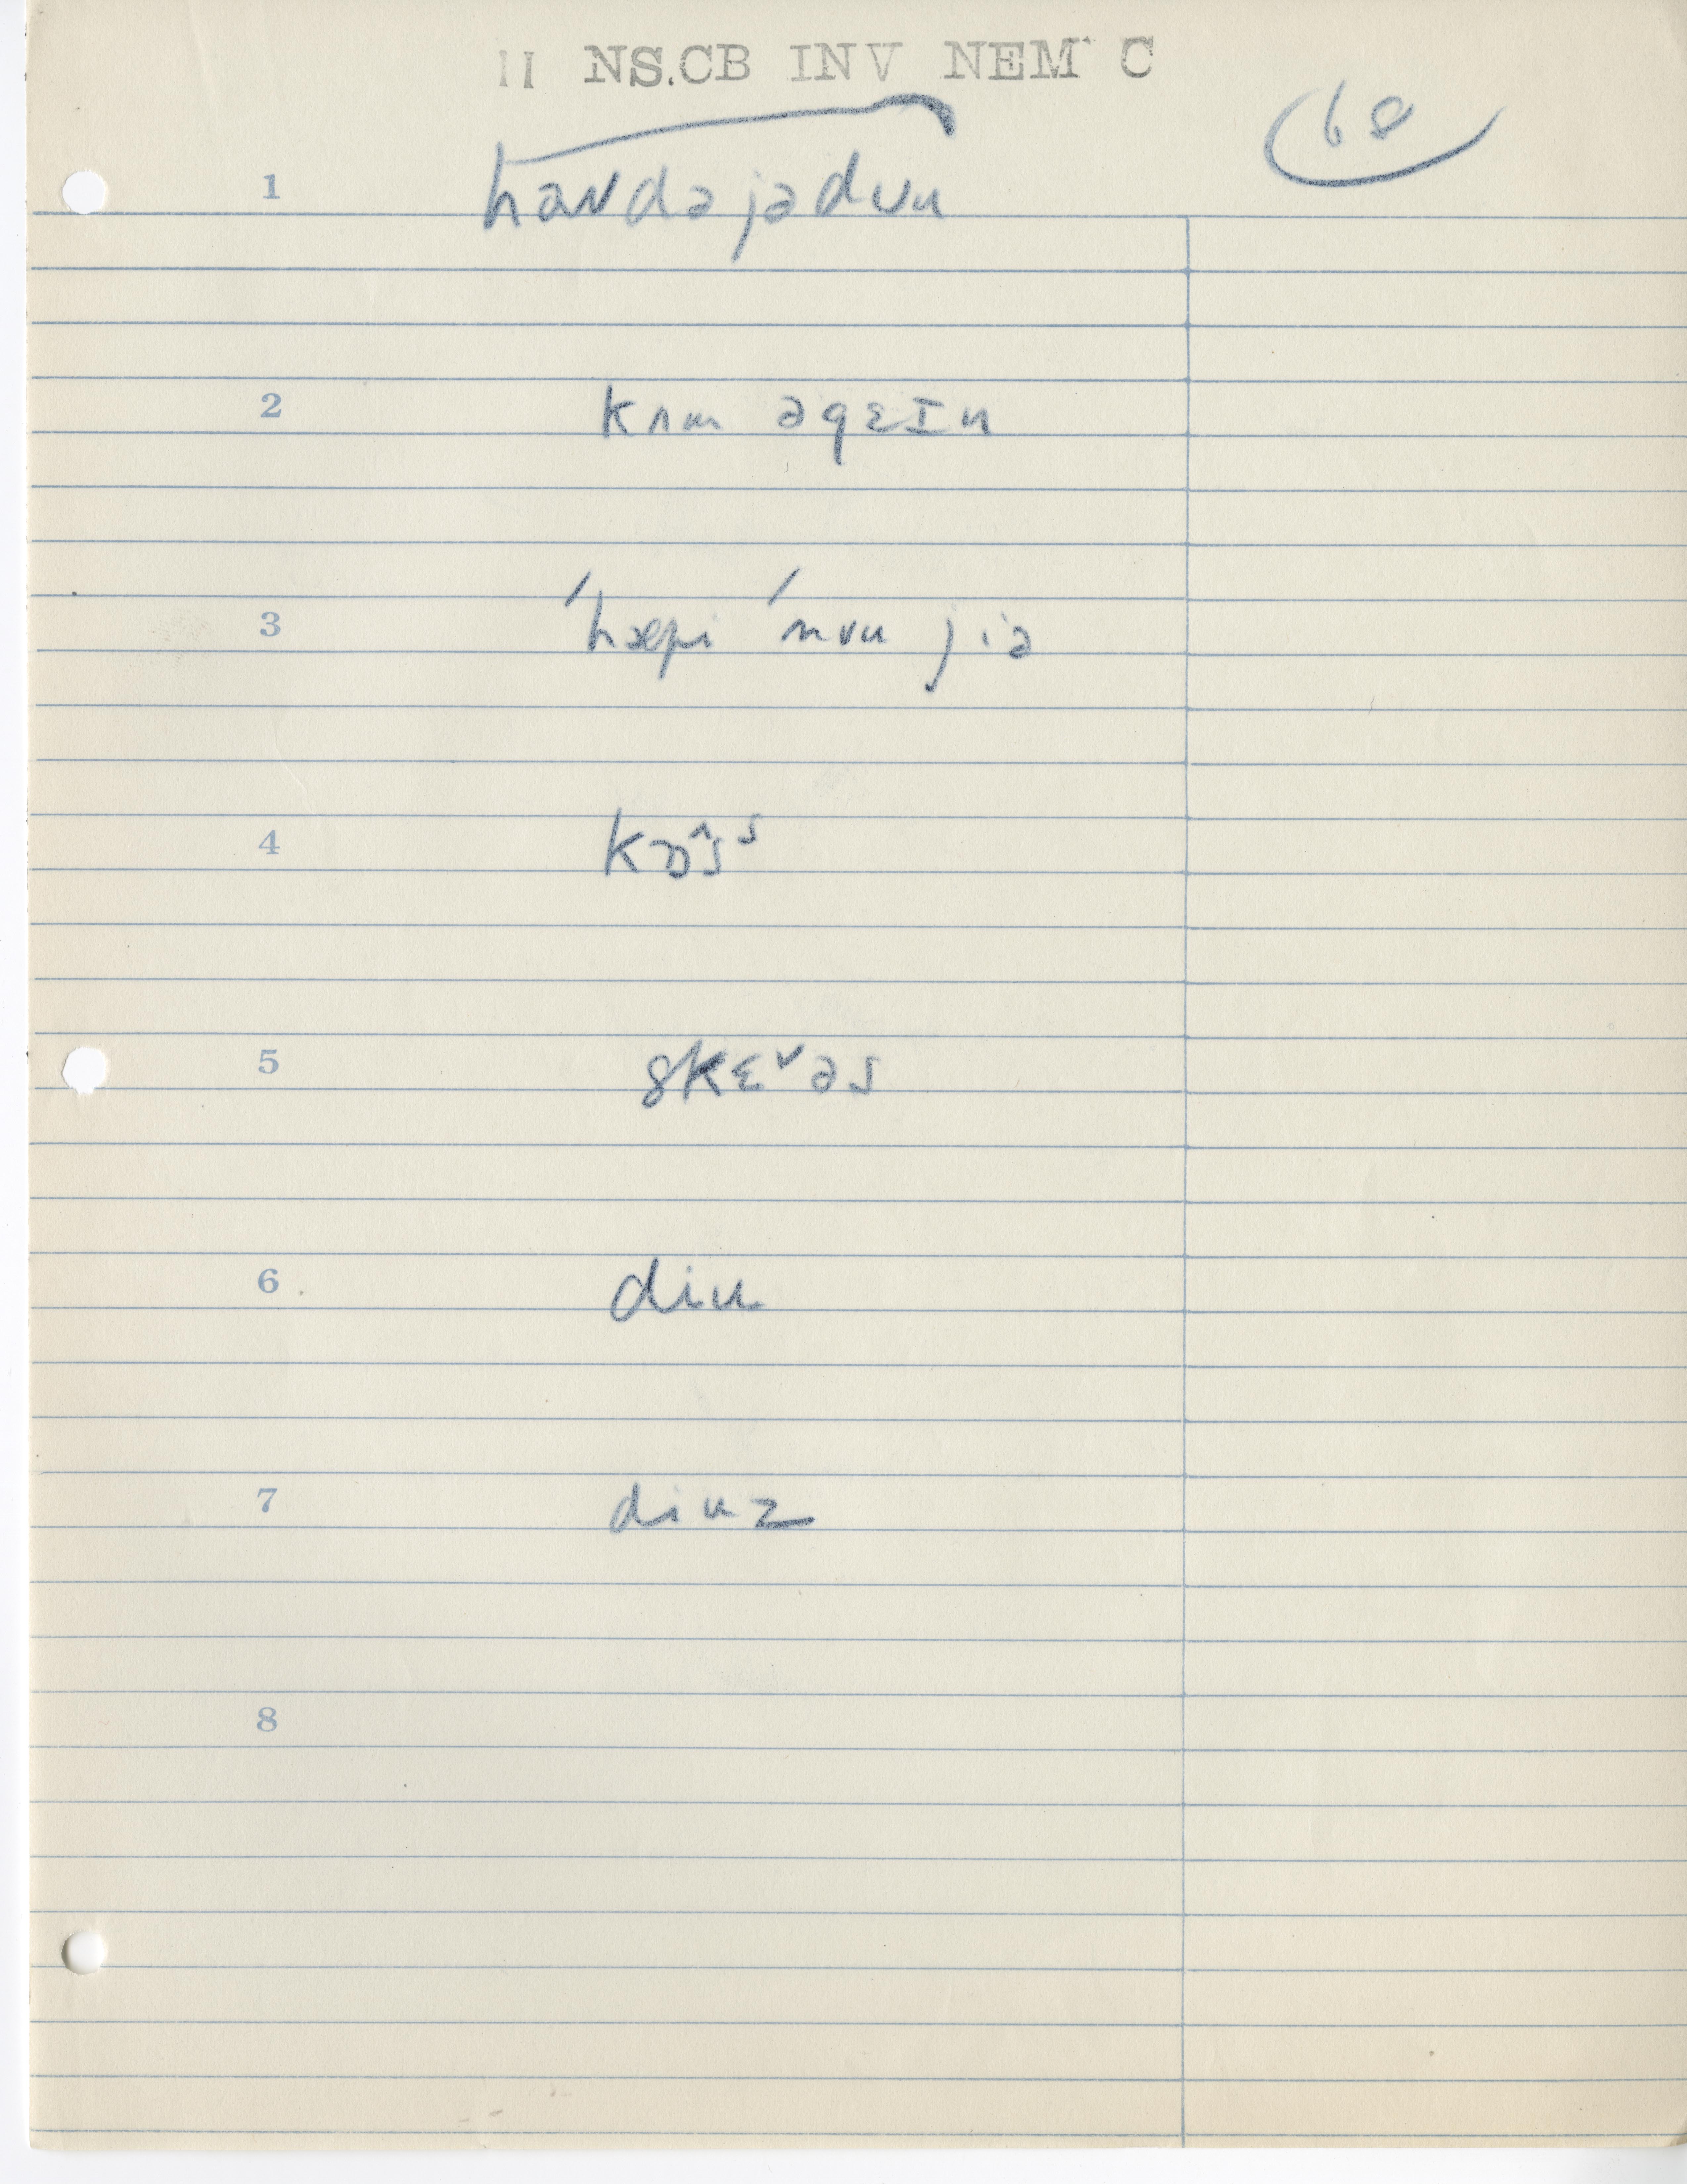 II NS.CB INV NEM C
68
1 haʊdəjədun
2 kʌm əgɛɪn
3 ˈhæpi ˈnuu jiə
4 kɒ^s s
5 skɛ˅əs
6 diu
7 diuz
8